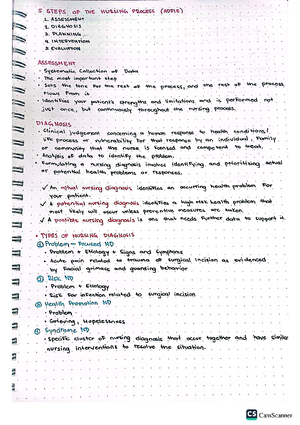 5 STEPS OF THE NURSING PROCESS (ADPIE)
1. ASSESSMENT
2. DIAGNOSIS
3. PLANNING
4. INTERVENTION
5. EVALUATION
ASSESSMENT
• Systematic Collection of Data
• The most important step
• Sets the tone for the rest of the process, and the rest of the process
flows from it
• Identifies your patient's strengths and limitations and is performed not
just once, but continuously throughout the nursing process.
DIAGNOSIS
• Clinical judgement concerning a human response to health conditions/
life process or vulnerability for that response by an individual, family
or community that the nurse is licensed and competent to treat.
• Analysis of data to identify the problem.
• Formulating a nursing diagnosis involves identifying and prioritizing actual
or potential health problems or responses.
✓ An actual nursing diagnosis identifies an occurring health problem for
your patient.
✓ A potential nursing diagnosis identifies a high risk health problem that
most likely will occur unless preventive measures are taken.
✓ A possible nursing diagnosis is one that needs further data to support it.
• TYPES OF NURSING DIAGNOSIS
① Problem - Focused ND
• Problem + Etiology + Signs and Symptoms
• Acute pain related to trauma of surgical incision as evidenced
by facial grimace and guarding behavior
② Risk ND
• Problem + Etiology
• Risk for infection related to surgical incision
③ Health Promotion ND
• Problem
• Hopelessness
④ Syndrome ND
• Specific cluster of nursing diagnosis that occur together and have similar
nursing interventions to resolve the situation.
CS CamScanner